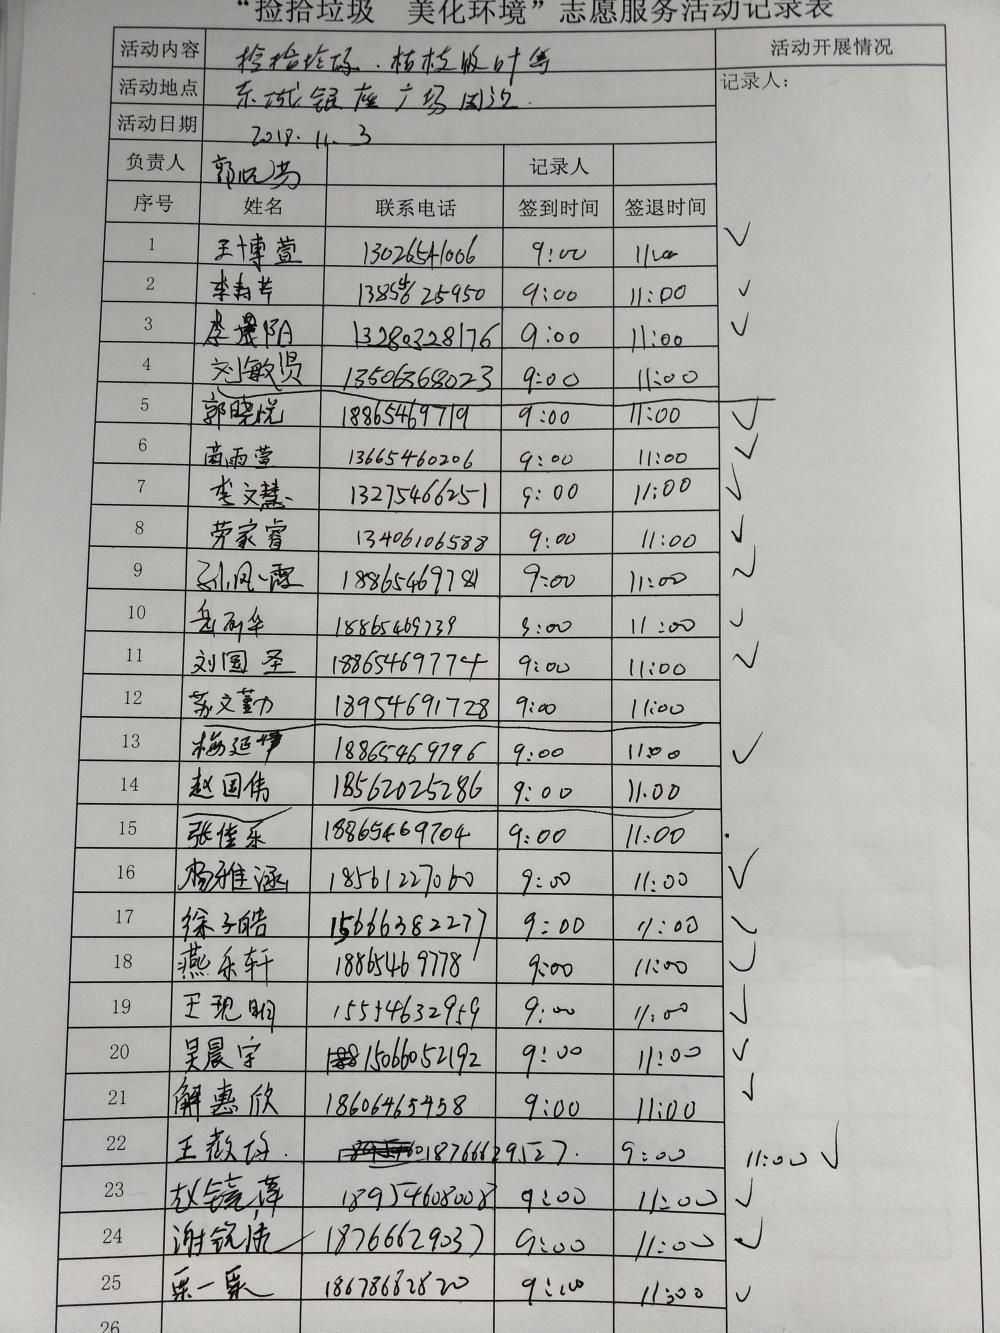 “捡拾垃圾 美化环境”志愿服务活动记录表
活动内容 捡拾垃圾、枯枝败叶等 活动开展情况
活动地点 东城银座广场周边. 记录人:
活动日期 2018.11.3
负责人 郭 记录人
序号 姓名 联系电话 签到时间 签退时间
1 王博萱 13026541006 9:00 11:00 ✓
2 李 25950 9:00 11:00 ✓
3 李 阳 13280328176 9:00 11:00 ✓
4 刘敏贤 13506368023 9:00 11:00
5 郭晓悦 18865469719 9:00 11:00 ✓
6 商雨萱 13665460206 9:00 11:00 ✓
7 李文慧 13275466251 9:00 11:00 ✓
8 劳家睿 13406106588 9:00 11:00 ✓
9 孙凤霞 18865469781 9:00 11:00 ✓
10 岳 18865469739 9:00 11:00 ✓
11 刘国圣 18865469774 9:00 11:00 ✓
12 苏文勤 18954691728 9:00 11:00
13 梅延 18865469796 9:00 11:00 ✓
14 赵国伟 18562025286 9:00 11:00
15 张佳乐 18865469704 9:00 11:00
16 杨雅涵 18561227060 9:00 11:00 ✓
17 徐子皓 15666382277 9:00 11:00 ✓
18 燕乐轩 18865469778 9:00 11:00 ✓
19 王现明 15554632959 9:00 11:00 ✓
20 吴晨宇 15066052192 9:00 11:00 ✓
21 解惠欣 18606465458 9:00 11:00 ✓
22 王 18766629527. 9:00 11:00 ✓
23 赵 萍 18954608008 9:00 11:00 ✓
24 谢锐 18766629037 9:00 11:00 ✓
25 栗一 18678682820 9:00 11:00 ✓
26